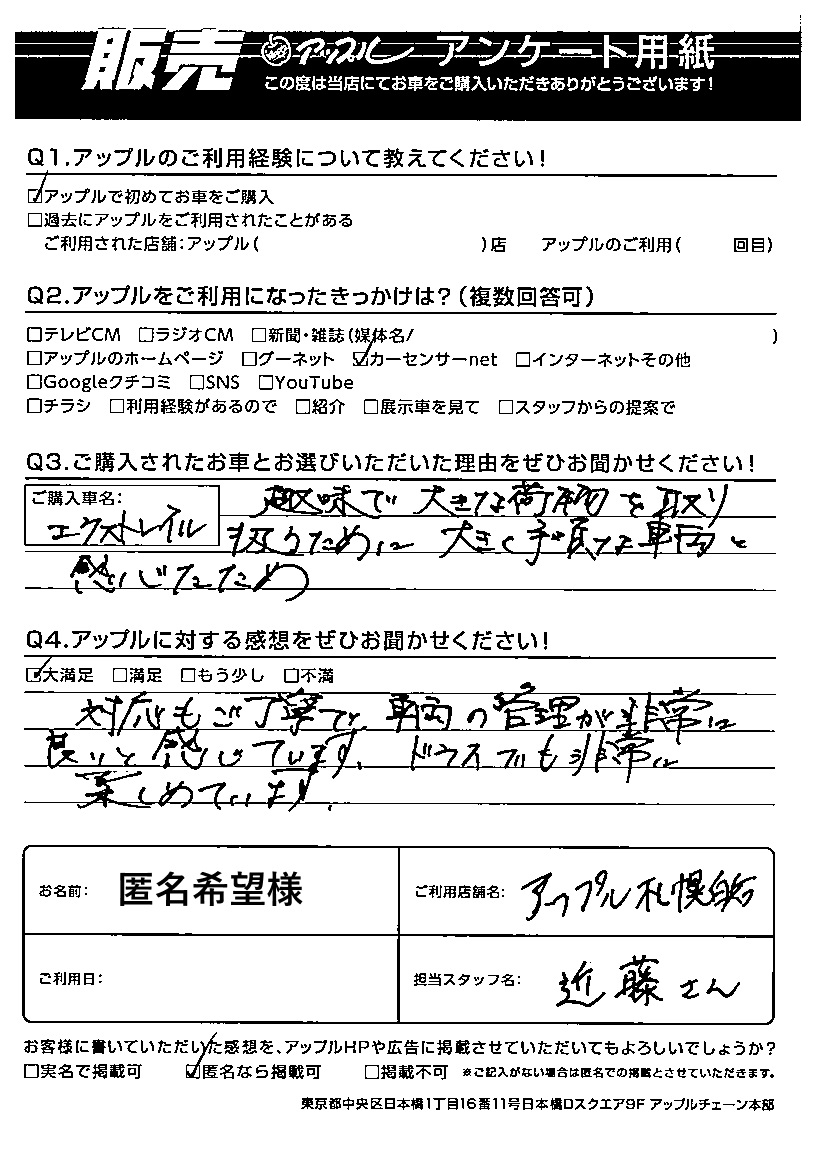 販売 アップル アンケート用紙
この度は当店にてお車をご購入いただきありがとうございます!
Q1.アップルのご利用経験について教えてください!
☑アップルで初めてお車をご購入
□過去にアップルをご利用されたことがある
ご利用された店舗:アップル( )店 アップルのご利用( 回目)
Q2.アップルをご利用になったきっかけは?(複数回答可)
□テレビCM □ラジオCM □新聞・雑誌(媒体名/ )
□アップルのホームページ □グーネット ☑カーセンサーnet □インターネットその他
□Googleクチコミ □SNS □YouTube
□チラシ □利用経験があるので □紹介 □展示車を見て □スタッフからの提案で
Q3.ご購入されたお車とお選びいただいた理由をぜひお聞かせください!
ご購入車名:
エクストレイル
趣味で 大きな荷物を取り
扱うために 大きく手頃な車両と
感じたため
Q4.アップルに対する感想をぜひお聞かせください!
☑大満足 □満足 □もう少し □不満
対応もご丁寧で、車両の管理が非常に
良いと感じています。ドライブも非常に
楽しめています。
お名前: 匿名希望様 ご利用店舗名: アップル札幌白石
ご利用日: 担当スタッフ名: 近藤さん
お客様に書いていただいた感想を、アップルHPや広告に掲載させていただいてもよろしいでしょうか?
□実名で掲載可 ☑匿名なら掲載可 □掲載不可 ※ご記入がない場合は匿名での掲載とさせていただきます。
東京都中央区日本橋1丁目16番11号日本橋Dスクエア9F アップルチェーン本部